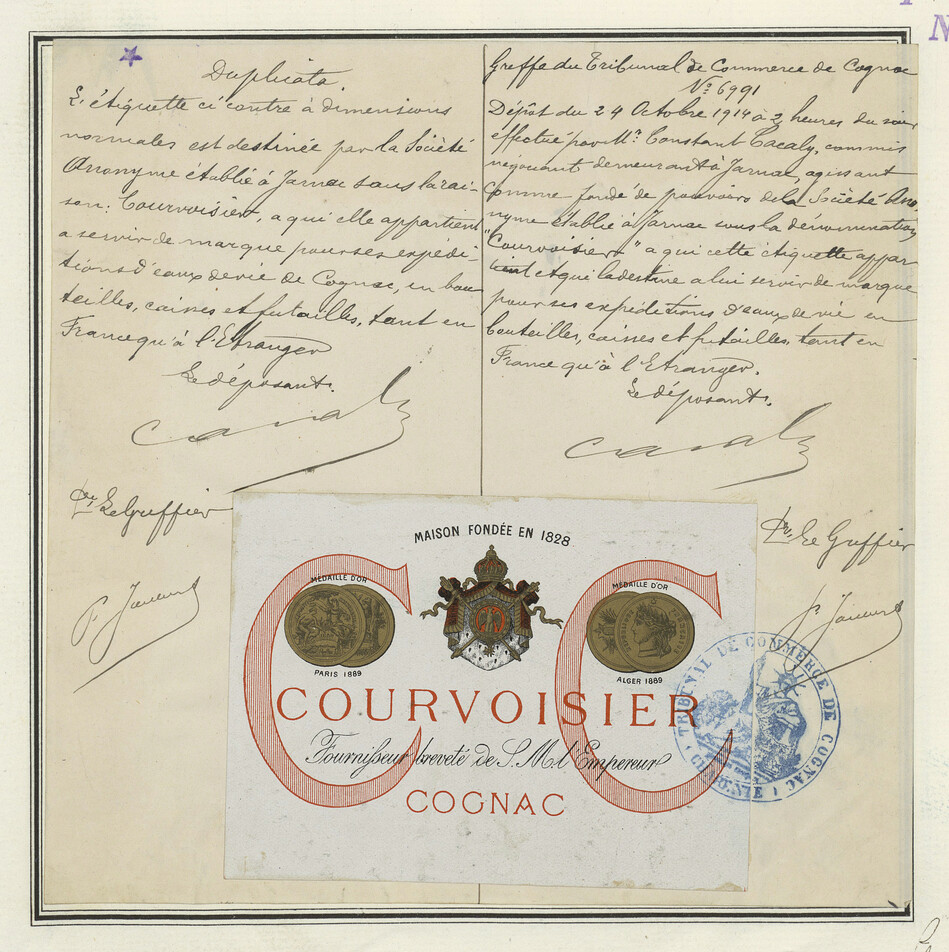 Duplicata.
L'étiquette ci contre à dimensions
normales est destinée par la Société
Anonyme établie à Jarnac sous la rai-
son: Courvoisier, a qui elle appartient
a servir de marque pour ses expédi-
tions d'eaux de vie de Cognac, en bou
teilles, caisses et futailles, tant en
France qu'à l'Etranger
Le déposant.
Pr. Le Greffier
Greffe du Tribunal de Commerce de Cognac
No 6991
Dépôt du 24 Octobre 1914 à 2 heures du soir
effectué par Mr. Constant Cacaly, commis
négociant demeurant à Jarnac, agissant
comme fondé de pouvoirs de la Société Ano
nyme établie à Jarnac sous la dénomination
"Courvoisier" a qui cette étiquette appar
tient et qui la destine a lui servir de marque
pour ses expéditions d'eaux de vie en
bouteilles, caisses et futailles, tant en
France qu'à l'Etranger.
Le déposant.
Pr. Le Greffier
MAISON FONDÉE EN 1828
MÉDAILLE D'OR
PARIS 1889
MÉDAILLE D'OR
ALGER 1889
C C
COURVOISIER
Fournisseur breveté de S. M. l'Empereur
COGNAC
TRIBUNAL DE COMMERCE DE COGNAC